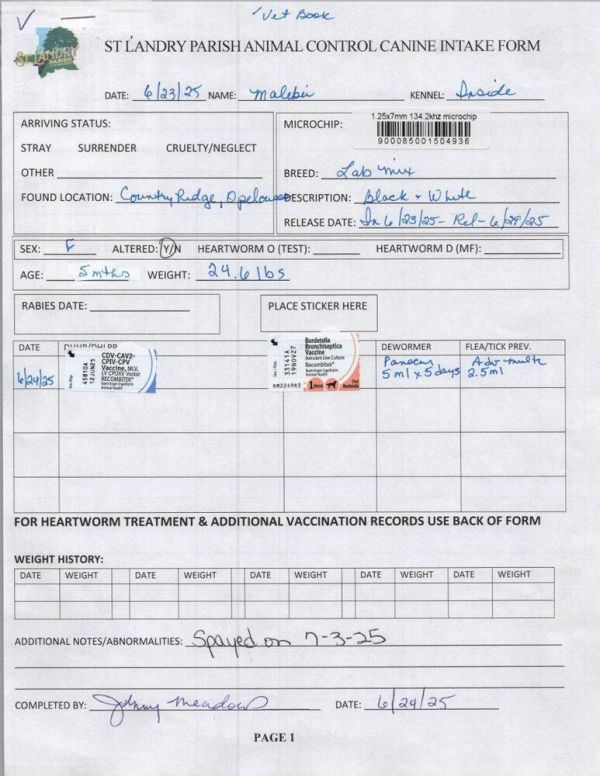 ✓ Vet Book
ST LANDRY PARISH
ST LANDRY PARISH ANIMAL CONTROL CANINE INTAKE FORM
DATE: 6/23/25 NAME: Malibu KENNEL: Inside
ARRIVING STATUS:
STRAY SURRENDER CRUELTY/NEGLECT
OTHER
FOUND LOCATION: Country Ridge, Opelousas
MICROCHIP: 1.25x7mm 134.2khz microchip
900085001504936
BREED: Lab mix
DESCRIPTION: Black + White
RELEASE DATE: In 6/23/25 - Rel - 6/29/25
SEX: F ALTERED: Y/N HEARTWORM O (TEST): HEARTWORM D (MF):
AGE: 5 mths WEIGHT: 24.6 lbs
RABIES DATE:
PLACE STICKER HERE
DATE DEWORMER FLEA/TICK PREV.
6/24/25
CDV-CAV2-
CPIV-CPV
Vaccine, MLV,
LV CPOXV Vector
RECOMBITEK®
Boehringer Ingelheim
Animal Health
45810A
12JUN25
Bordetella
Bronchiseptica
Vaccine
Avirulent Live Culture
Recombitek®
Boehringer Ingelheim
Animal Health
33141A
19NOV27
RM2249R3
1 dose
Oral
Bordetella
Panacur
5 ml x 5 days
Adv-multi
2.5ml
FOR HEARTWORM TREATMENT & ADDITIONAL VACCINATION RECORDS USE BACK OF FORM
WEIGHT HISTORY:
DATE WEIGHT DATE WEIGHT DATE WEIGHT DATE WEIGHT DATE WEIGHT
ADDITIONAL NOTES/ABNORMALITIES: Spayed on 7-3-25
COMPLETED BY: Johnny Meadows DATE: 6/24/25
PAGE 1